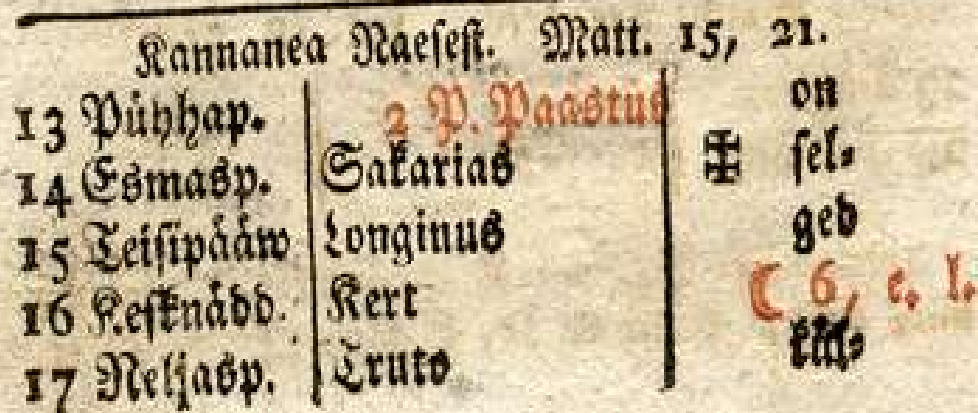 Kannanea Naesest. Matt. 15, 21.
13 Pühhap. 2 P. Paastus on
14 Esmasp. Sakarias ✠ sel-
15 Teisipääw Longinus ged
16 Kesknädd. Kert ☾ 6, e. l.
17 Neljasp. Truto kül-